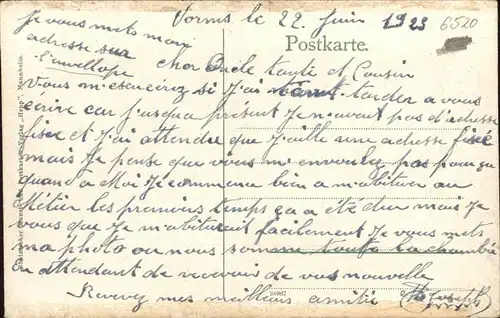 Je vous mets mon
adresse sur
l'anvellope
Vorms le 22 Juin 1923
6520
Postkarte.
cher Oncle tante et Cousin
Vous m'escuserez si J'ai tant tarder a vous
écrire car jusqua présent Je n'avait pas d'adresse
fisée et J'ai attendre que J'aille une adresse fisée
mais Je pense que vous m'envoulez pas pour ça
quand a Moi Je commence bien a m'abituer au
Métier les premiers temps ça a été dur mais Je
vous que Je m'abituerait facilement Je vous mets
ma photo ou nous somme toute la chambré
en attendant de recevoir de vos nouvelle
Recevez mes meilleurs amitié
Joseph
Verlag „Hepp", Mannheim.